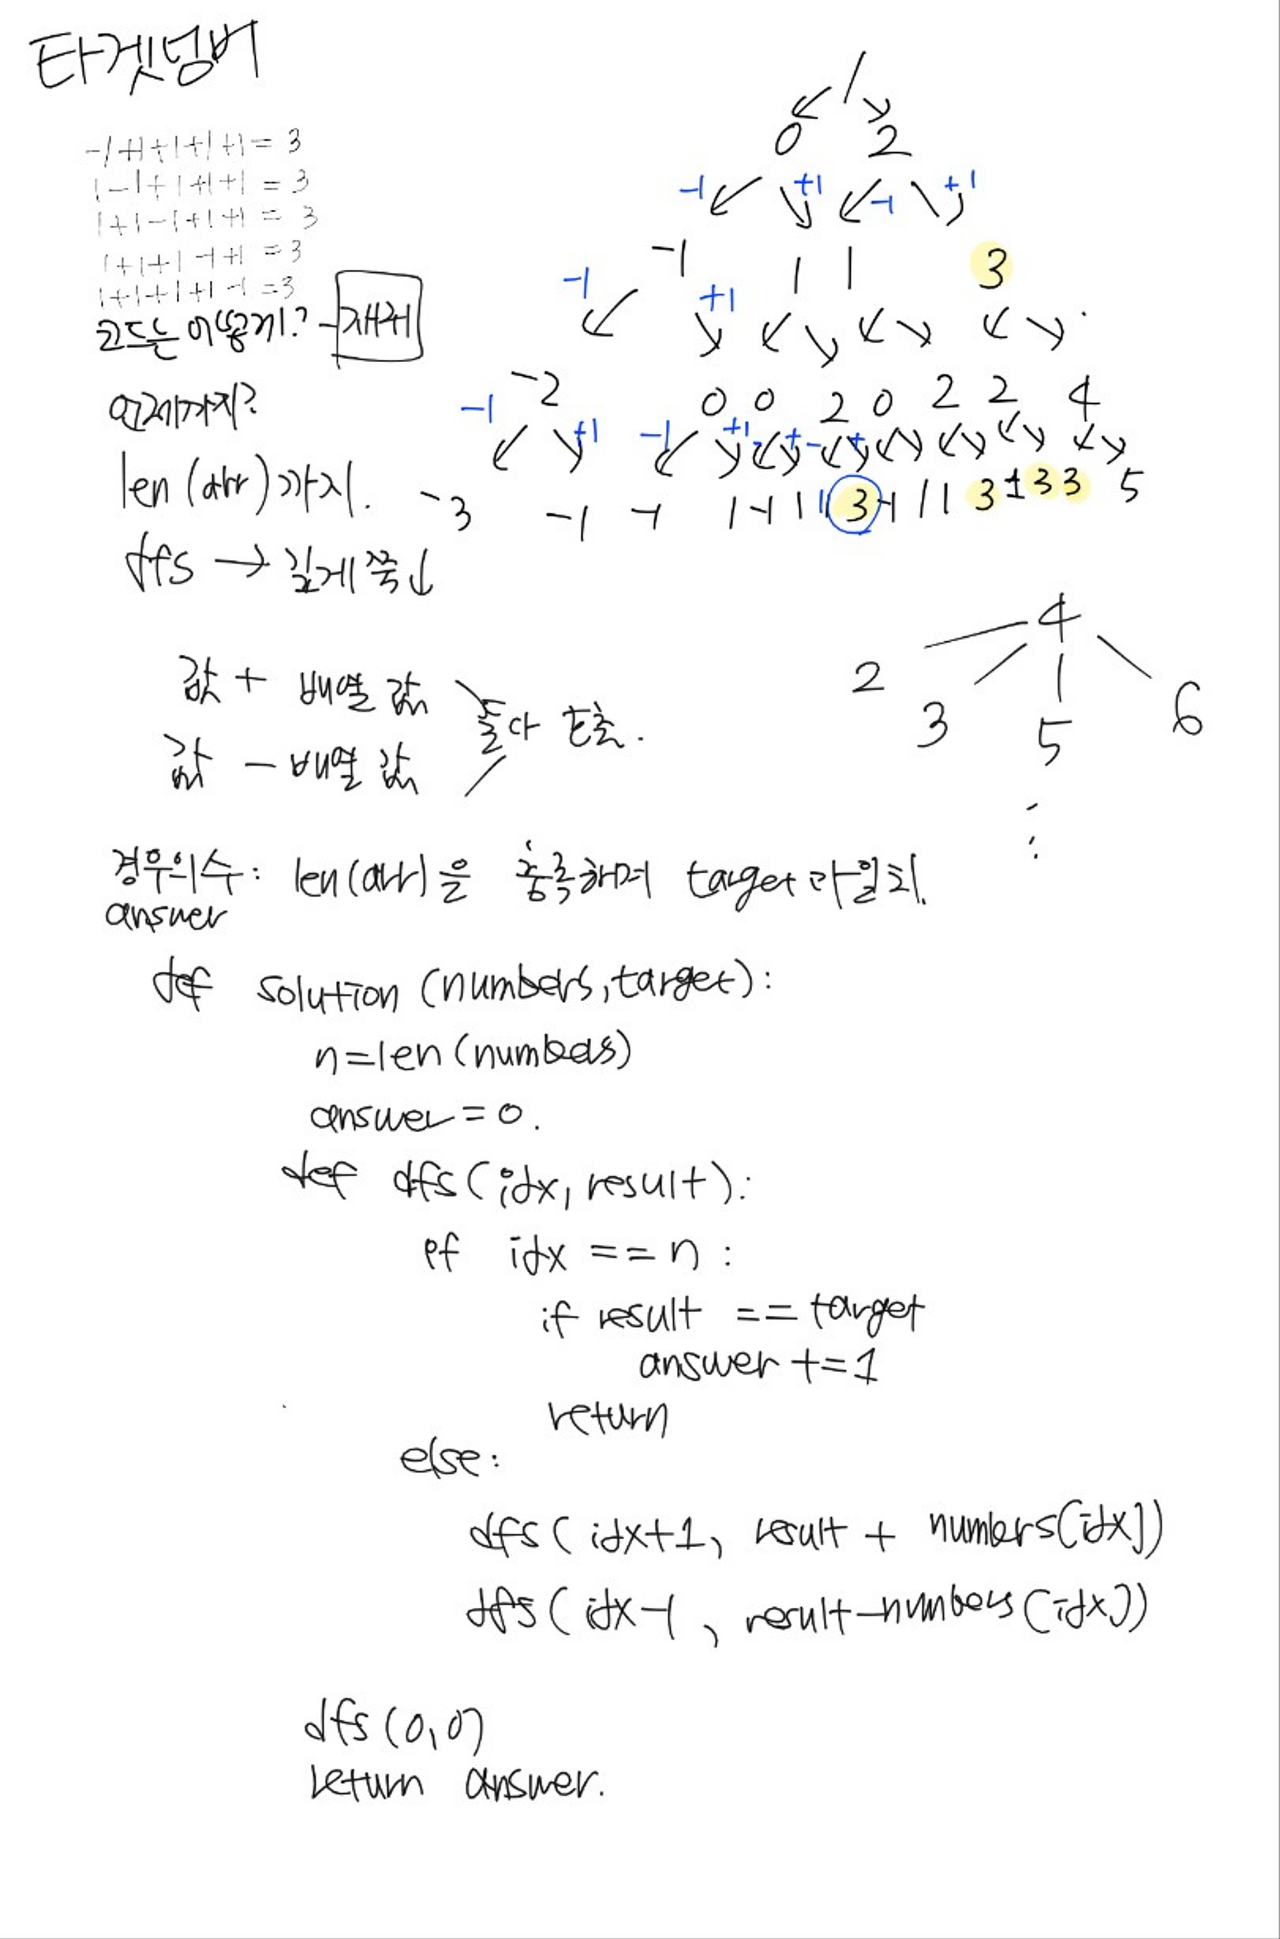 타겟넘버
-1+1+1+1+1=3
1-1+1+1+1=3
1+1-1+1+1=3
1+1+1-1+1=3
1+1+1+1-1=3
코드는 어떻게? - 재귀
언제까지?
len(arr)까지.
dfs → 깊게 쭉↓
1
0 2
-1 +1 -1 +1
-1 1 1 3
-1 +1
-2 0 0 2 0 2 2 4
-1 +1 -1 +1 - + - +
-3 -1 -1 1 -1 1 1 3 -1 1 1 3 1 3 3 5
4
2 3 5 6
값 + 배열 값
값 - 배열 값
둘다 호출.
경우의수: len(arr)을 충족하며 target과일치.
answer
def solution(numbers,target):
n=len(numbers)
answer=0.
def dfs(idx, result):
if idx == n:
if result == target
answer +=1
return
else:
dfs(idx+1, result + numbers[idx])
dfs(idx-1, result-numbers[idx])
dfs(0,0)
return answer.